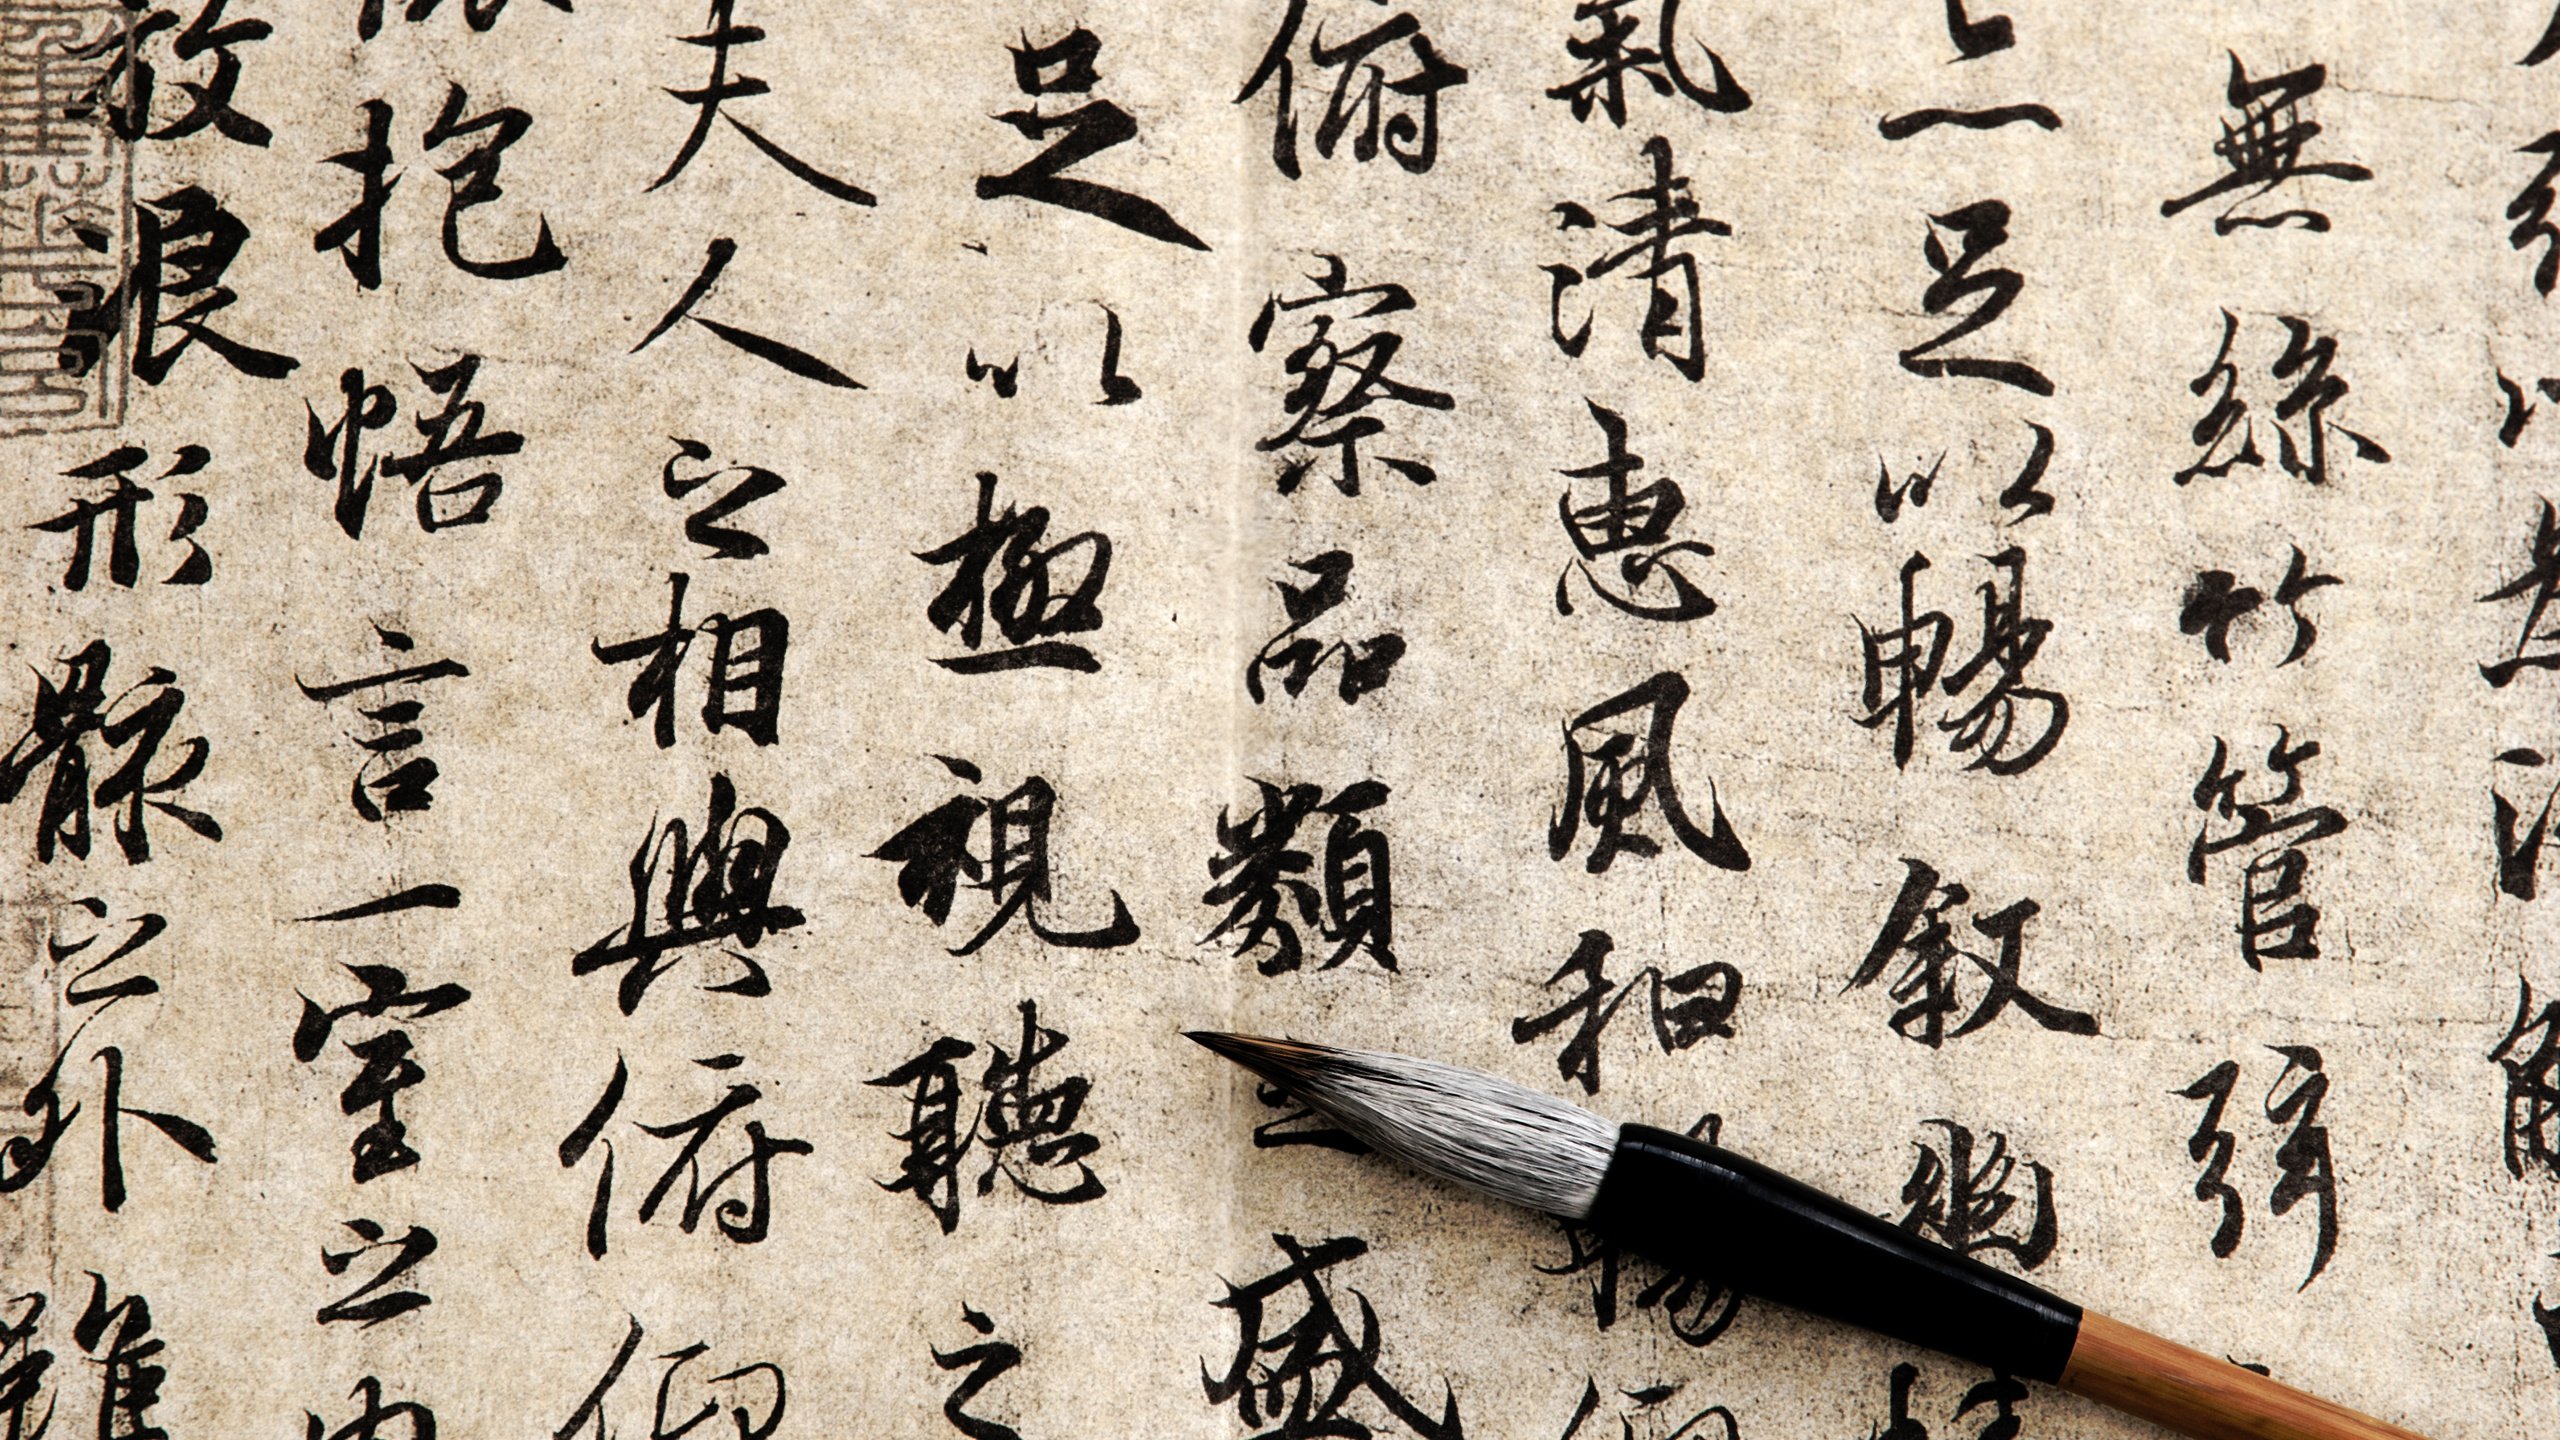 無絲竹管弦
足以暢叙幽
氣清惠風和暢仰
俯察品類之盛
足以極視聽之
夫人之相與俯仰
抱悟言一室之内
放浪形骸之外雖